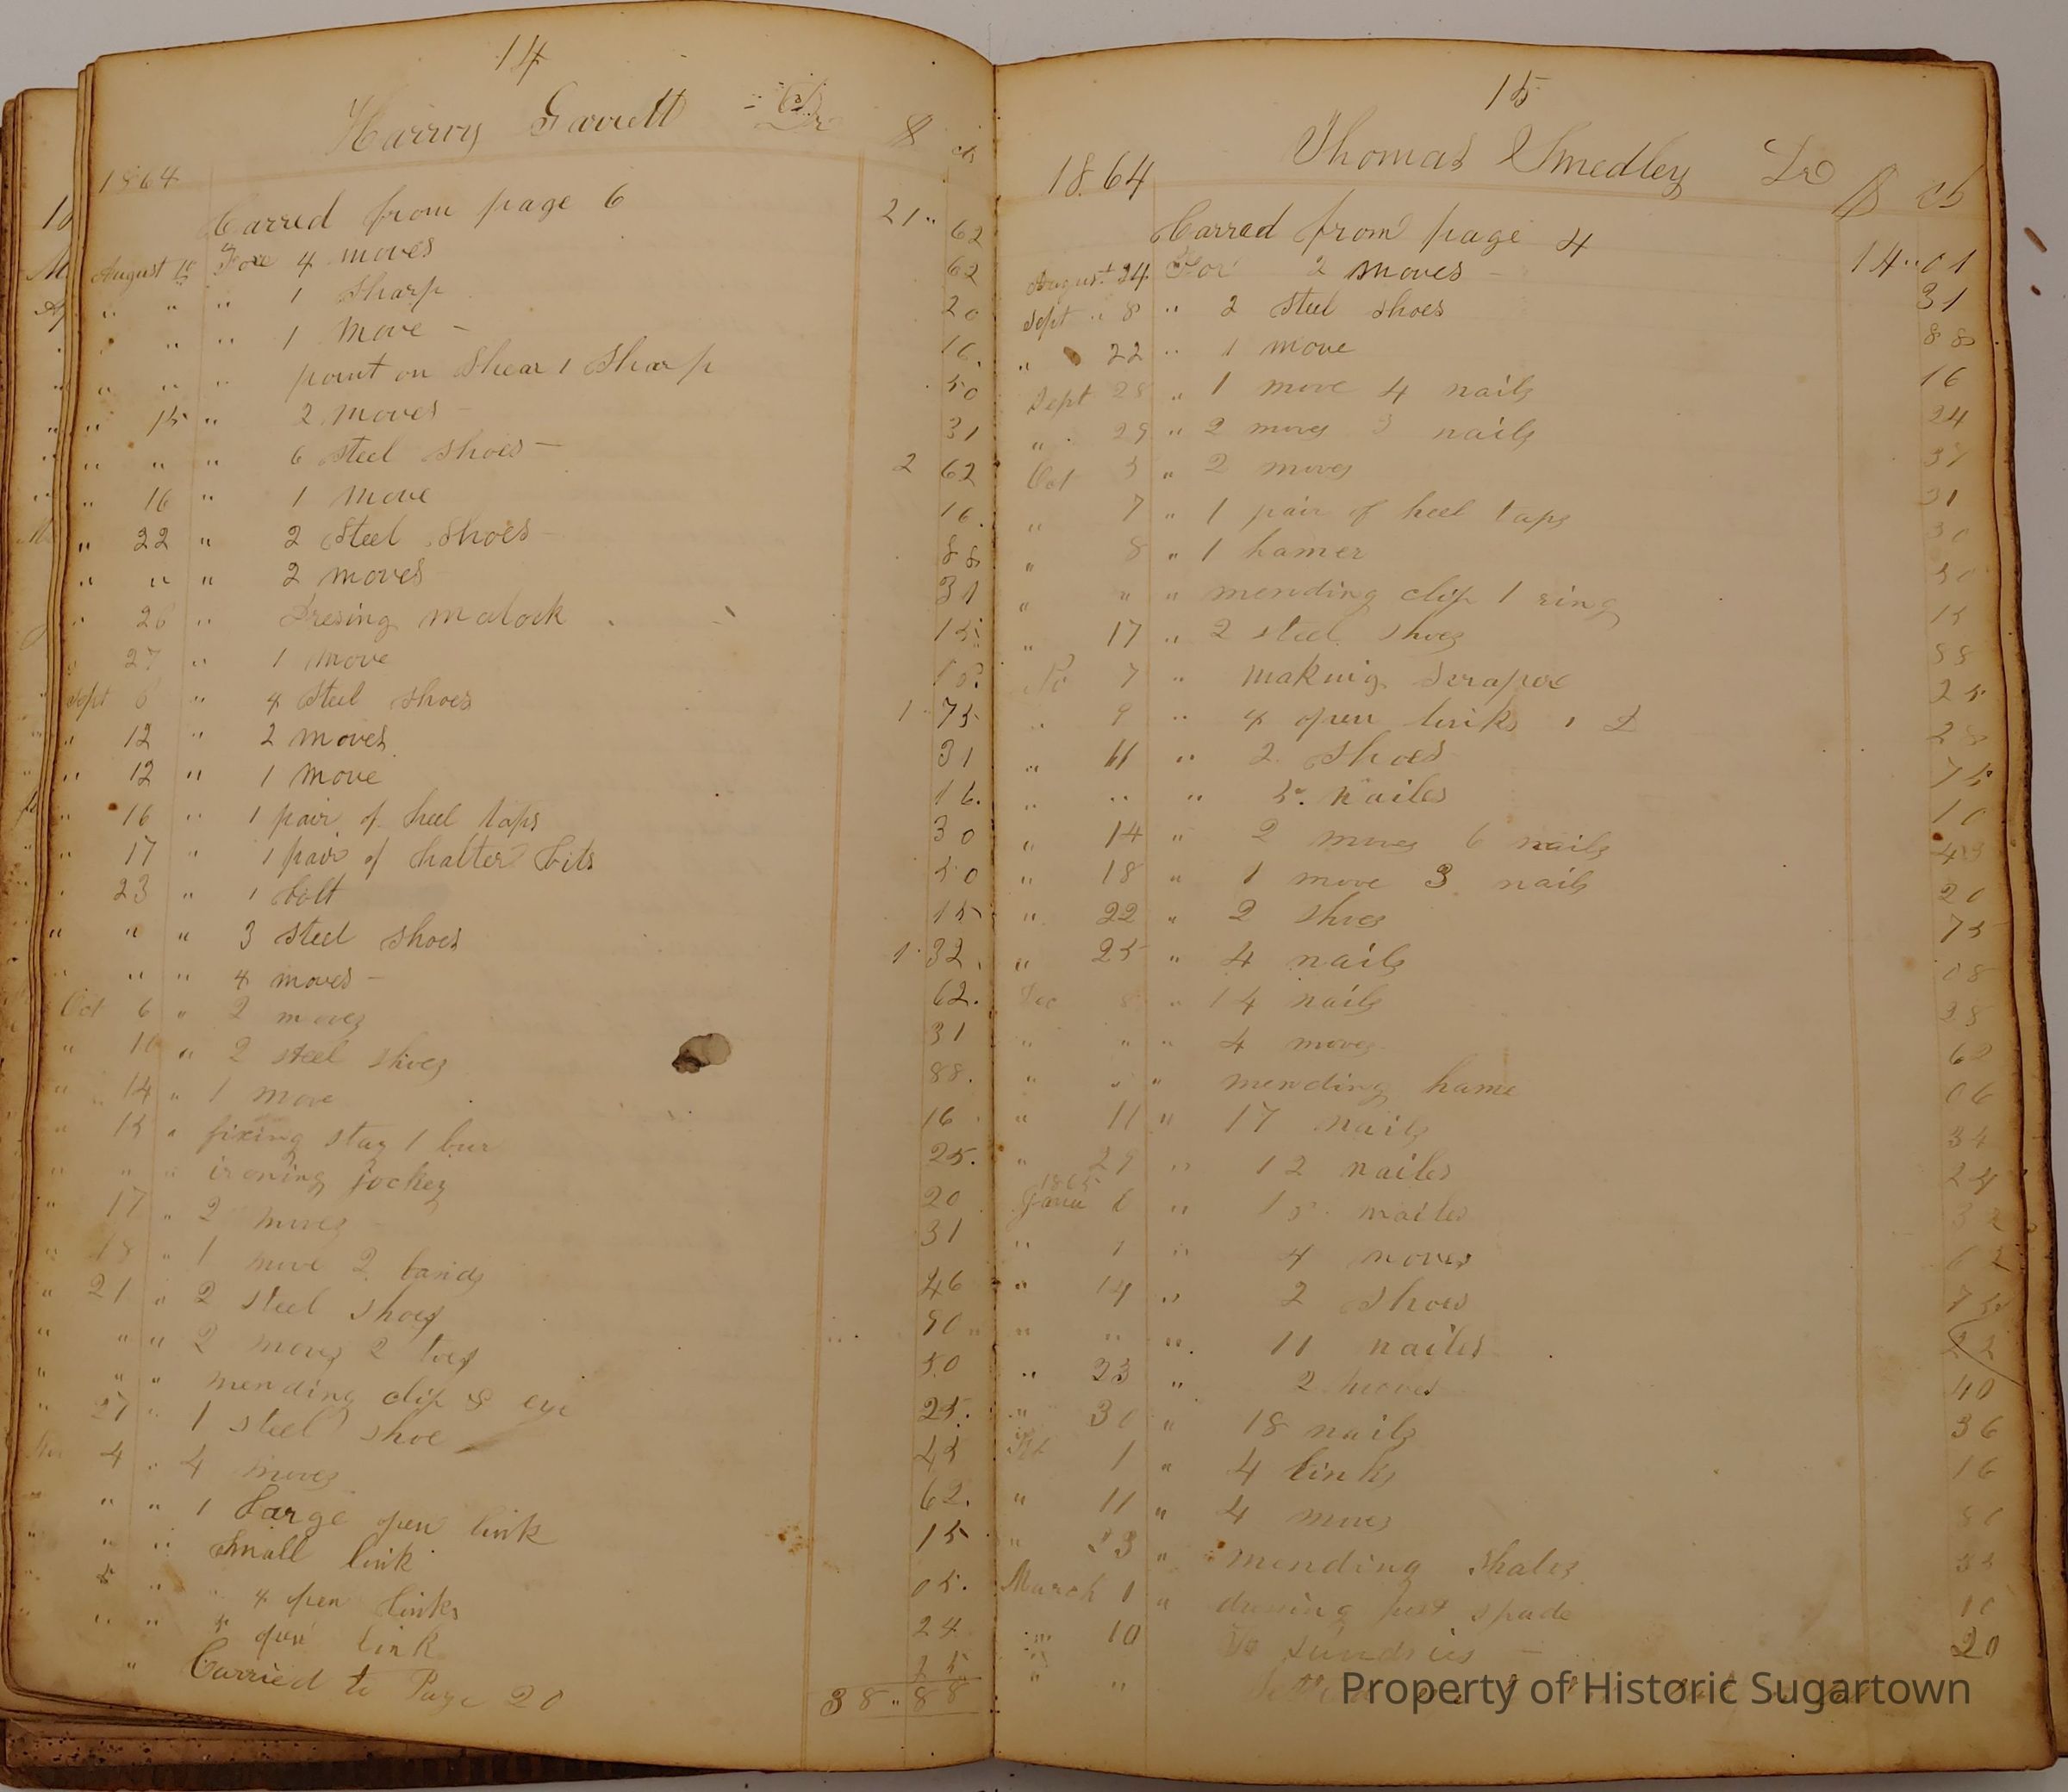 14
Harry Garrett Dr
$ cts
1864
Carred from page 6 21 " 62
August 10 Fore 4 moves 62
" " " 1 Sharp 20
" " " 1 move - 16
" " " point on Shear 1 Sharp 50
" 15 " 2 moves - 31
" " " 6 Steel Shoes - 2 62
" 16 " 1 move 16
" 22 " 2 Steel Shoes 88
" " " 2 moves 31
" 26 " Dresing matock 15
" 27 " 1 move
Sept 6 " 4 Steel Shoes 1 75
" 12 " 2 moves 31
" 12 " 1 move 16
" 16 " 1 pair of heel taps 30
" 17 " 1 pair of halter bits 50
" 23 " 1 bolt 15
" " " 3 Steel Shoes 1 32
" " " 4 moves - 62
Oct 6 " 2 moves 31
" 10 " 2 steel shoes 88
" 14 " 1 move 16
" 15 " fixing stay 1 bur 25
" " " ironing jockey 20
" 17 " 2 moves 31
" 18 " 1 move 2 bands 46
" 21 " 2 steel shoes 90
" " " 2 moves 2 toes 50
" " " mending clip & eye 25
" 27 " 1 steel shoe 45
Nov 4 " 4 moves 62
" " " 1 Large open link 15
" " " Small link 05
" 5 " 4 open links 24
" " " open link
" Carried to Page 20 38 " 88
15
Thomas Smedley Dr
1864 $ cts
Carred from page 4 14 " 01
August 24 For 2 moves - 31
Sept " 8 " 2 Steel Shoes 88
" 22 " 1 move 16
Sept 28 " 1 move 4 nails 24
" 29 " 2 moves 3 nails 37
Oct 5 " 2 moves 31
" 7 " 1 pair of heel taps 30
" 8 " 1 hamer 50
" " " mending clip 1 ring 15
" 17 " 2 steel shoes 88
No 7 " making Scraper 25
" 9 " 4 open links 28
" 11 " 2 Shoes 75
" " " 5 nailes 10
" 14 " 2 moves 6 nails 43
" 18 " 1 move 3 nails 20
" 22 " 2 shoes 75
" 25 " 4 nails 08
Dec 8 " 14 nails 28
" " " 4 moves 62
" " " mending hame 06
" 11 " 17 nails 34
" 29 " 12 nailes 24
1865
Janu 6 " nailes 32
" " 4 moves 62
" 14 " 2 Shoes 75
" " " 11 nailes 22
" 23 " 2 moves 40
" 30 " 18 nails 36
Feb 1 " 4 links 16
" 11 " 4 moves 80
" 23 " mending
March 1 " post spade 10
" 10 To Sundries - 20
" "
Property of Historic Sugartown